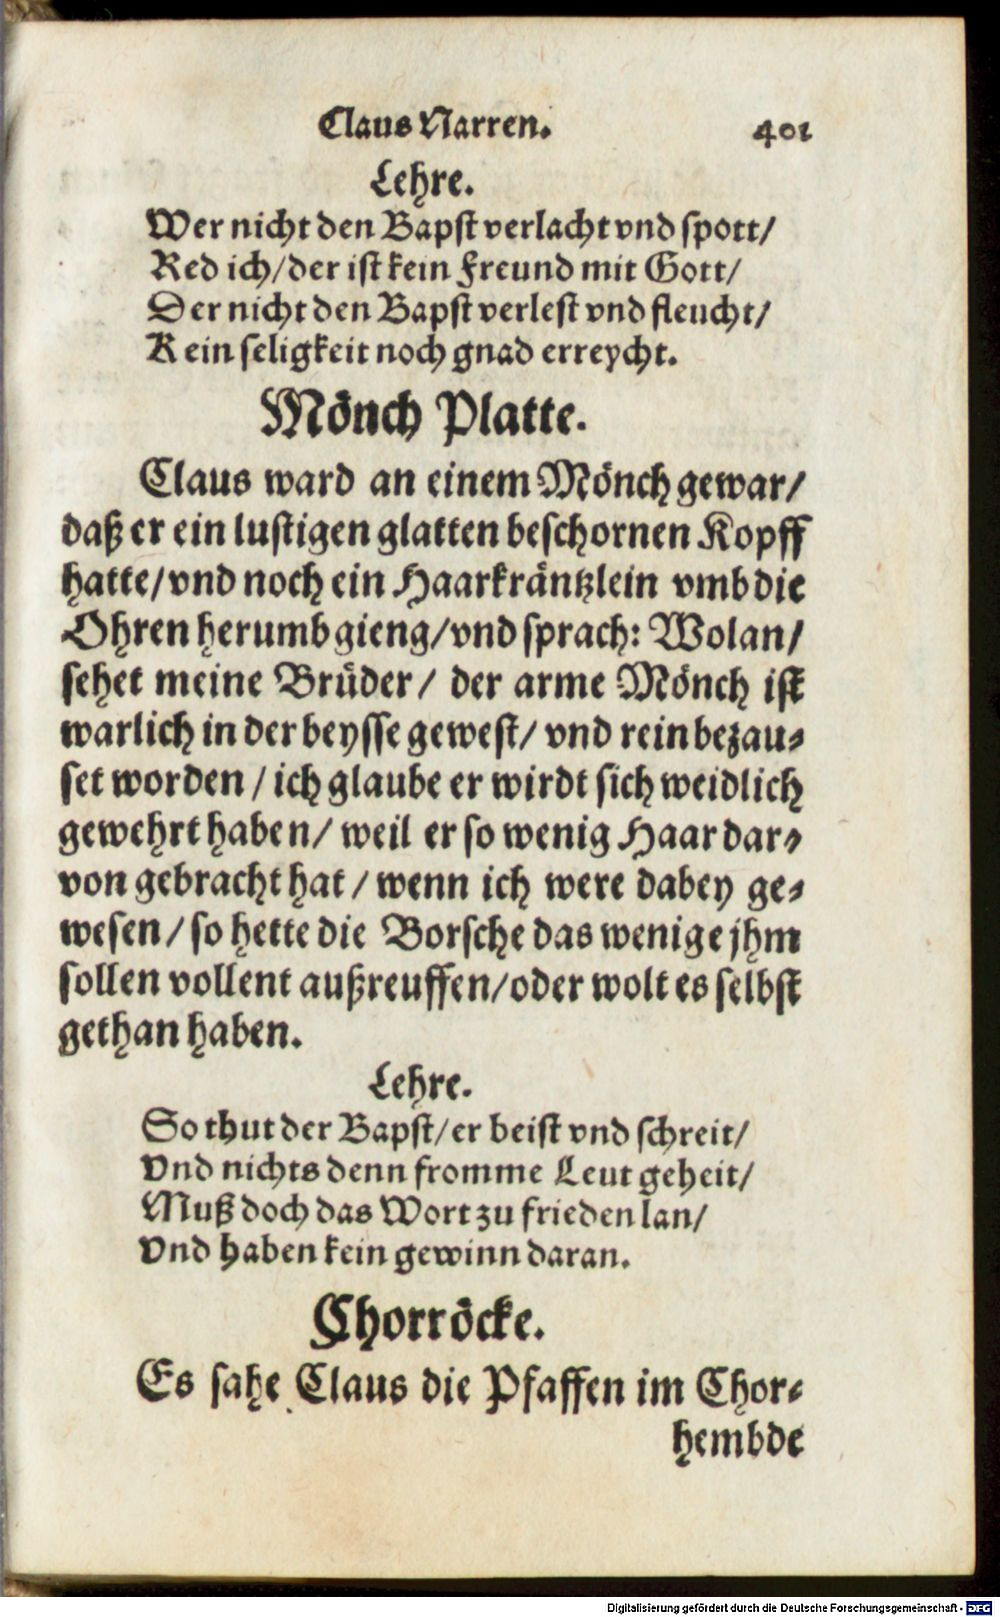 Claus Narren. 401
Lehre.
Wer nicht den Bapst verlacht vnd spott/
Red ich/der ist kein Freund mit Gott/
Der nicht den Bapst verlest vnd fleucht/
Kein seligkeit noch gnad erreycht.
Mönch Platte.
Claus ward an einem Mönch gewar/
daß er ein lustigen glatten beschornen Kopff
hatte/vnd noch ein Haarkräntzlein vmb die
Ohren herumb gieng/vnd sprach: Wolan/
sehet meine Brüder/ der arme Mönch ist
warlich in der beysse gewest/ vnd rein bezau-
set worden / ich glaube er wirdt sich weidlich
gewehrt haben/ weil er so wenig Haar dar-
von gebracht hat / wenn ich were dabey ge-
wesen / so hette die Borsche das wenige jhm
sollen vollent außreuffen/oder wolt es selbst
gethan haben.
Lehre.
So thut der Bapst/er beist vnd schreit/
Vnd nichts denn fromme Leut geheit/
Muß doch das Wort zu frieden lan/
Vnd haben kein gewinn daran.
Chorröcke.
Es sahe Claus die Pfaffen im Chor-
hembde
Digitalisierung gefördert durch die Deutsche Forschungsgemeinschaft - DFG